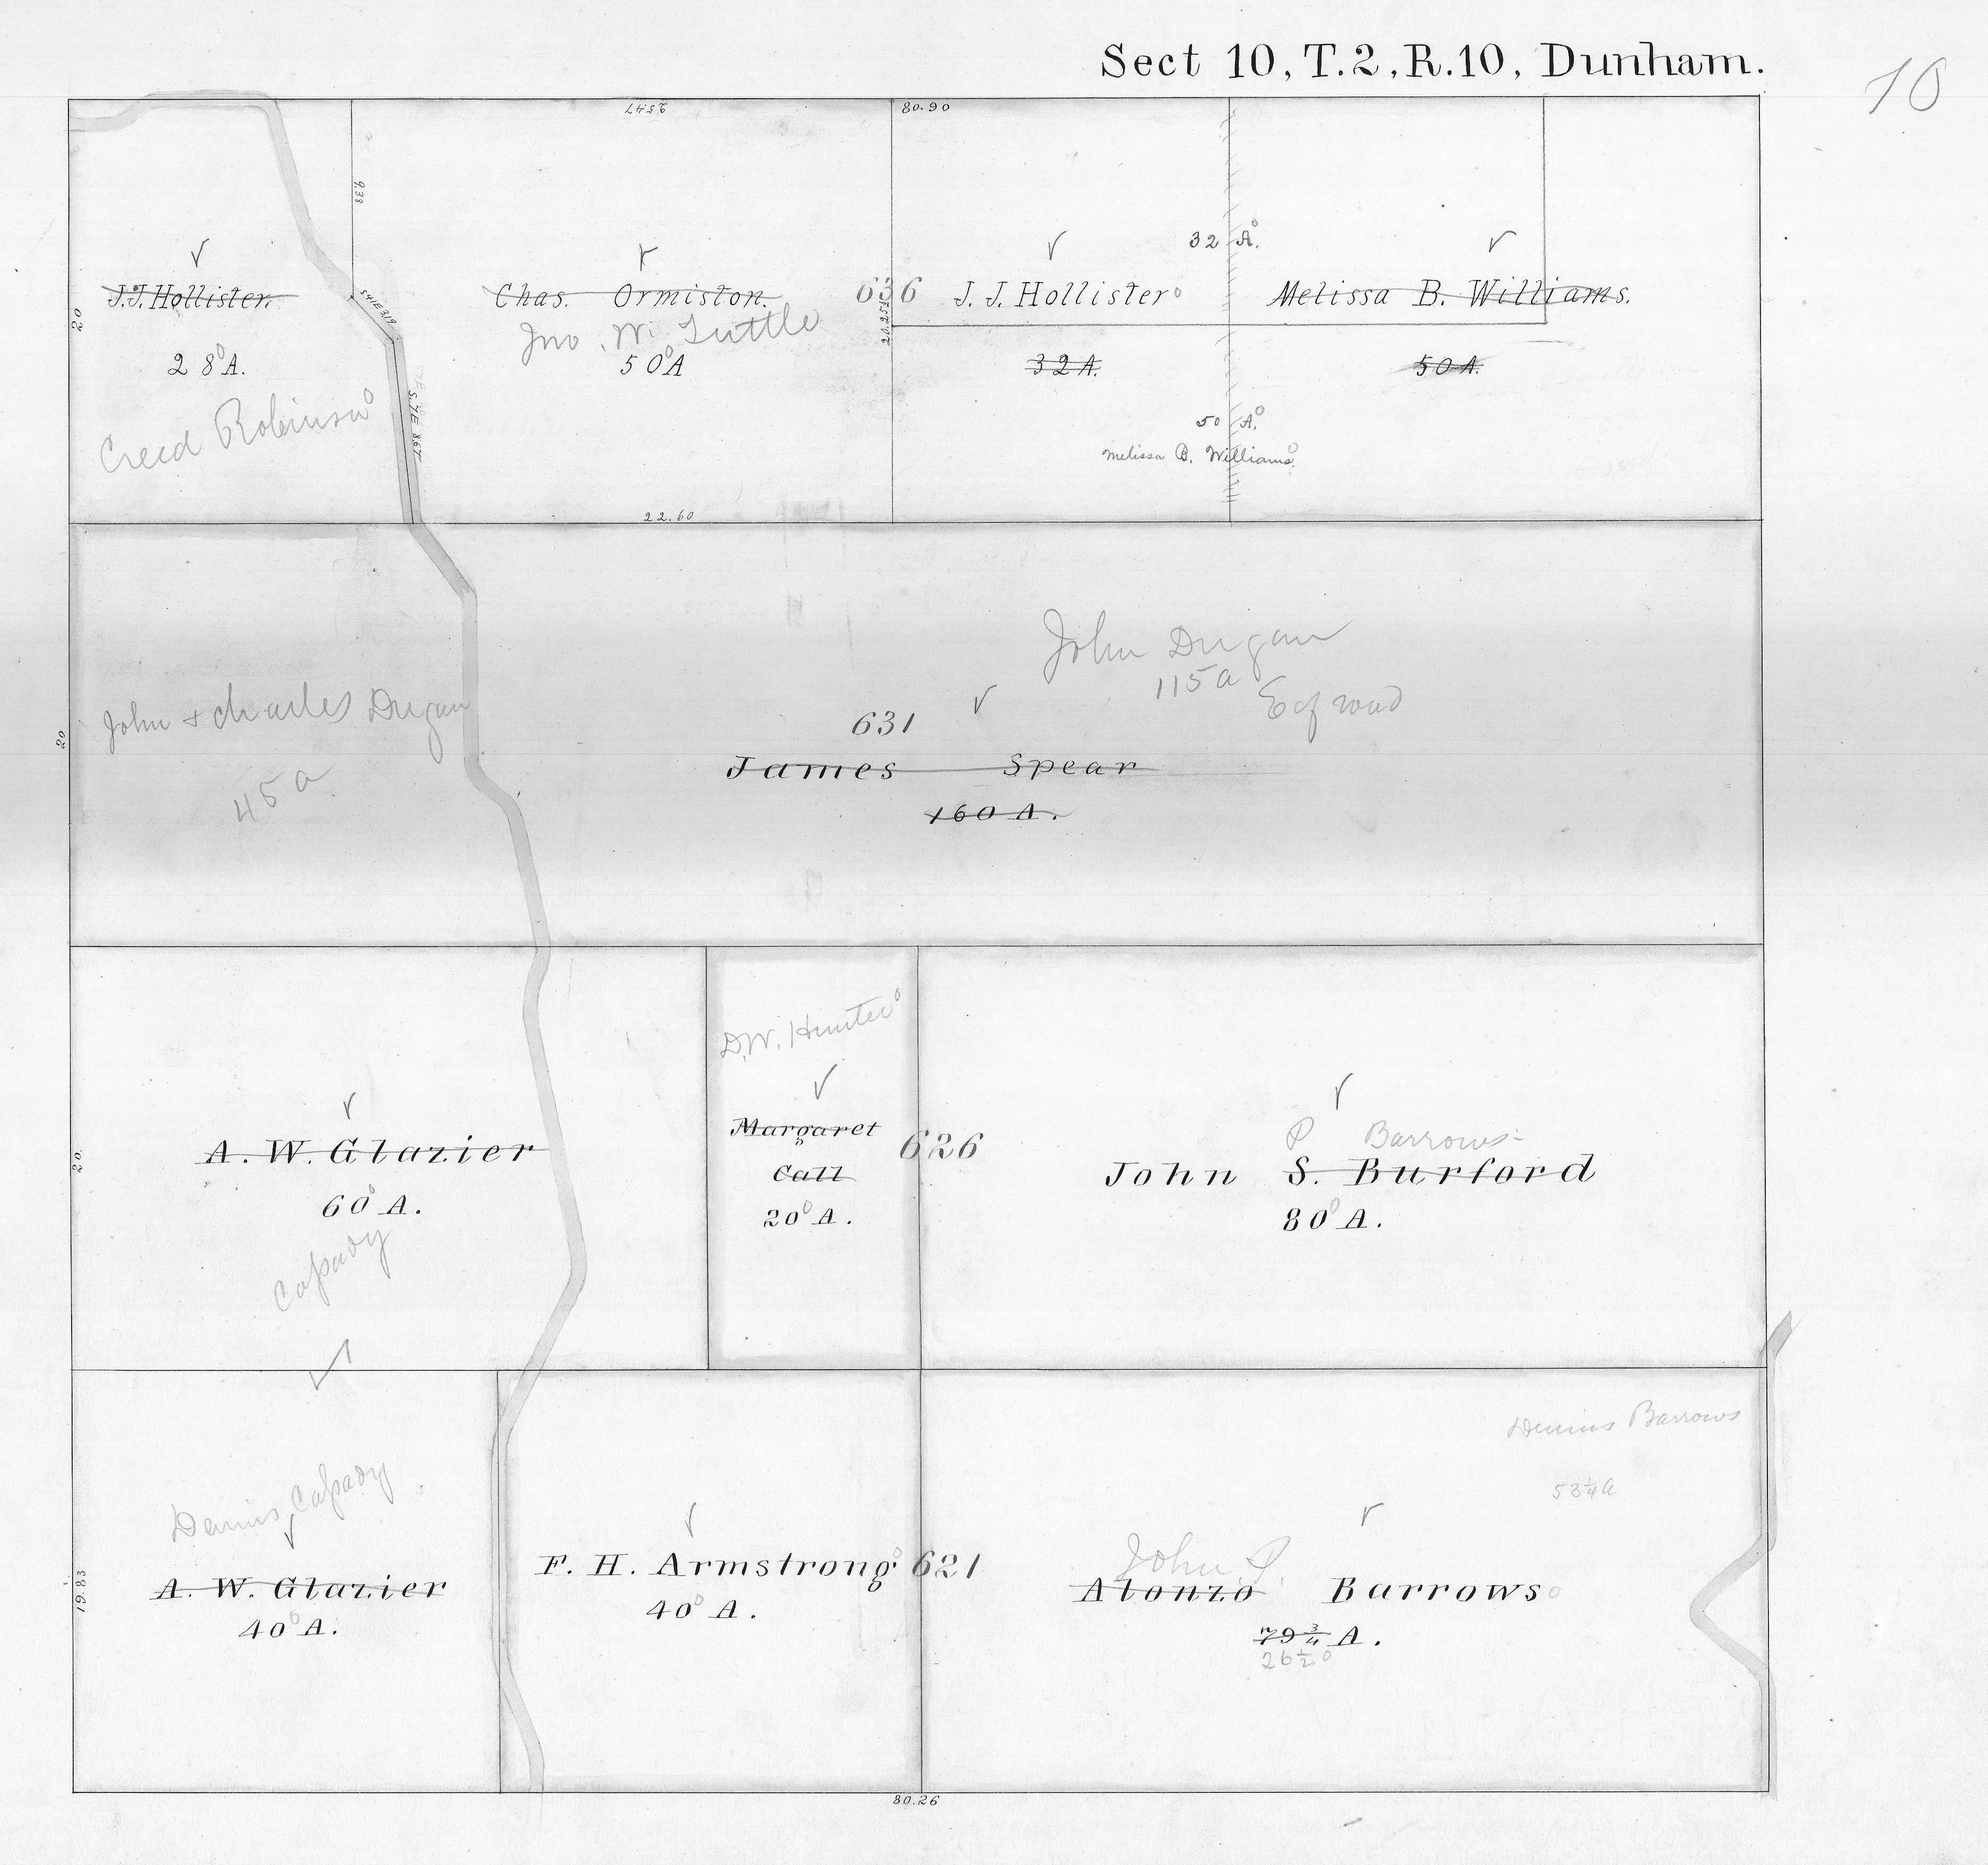 Sect 10, T.2, R.10, Dunham.
10
25.47
80.90
9.38
32 A.
J.J. Hollister.
Chas. Ormiston.
636
J. J. Hollister
Melissa B. Williams.
S41E3.19
20
Jno. W. Tuttle
20.25
28 A.
50 A
32 A.
50 A.
Creed Robinson
S.7E 8.67
50 A.
Melissa B. Williams
22.60
John Dugan
115 a
E of road
John & Charles Dugan
45 a
20
631
James Spear
160 A.
D.W. Hunter
Margaret
Call
20 A.
626
P Barrows
John S. Burford
80 A.
20
A. W. Glazier
60 A.
Cassady
Dennis Barrows
53 1/4 a
Dennis Cassady
A. W. Glazier
40 A.
19.83
F. H. Armstrong
40 A.
621
John P.
Alonzo Barrows
79 3/4 A.
26 1/2
80.26